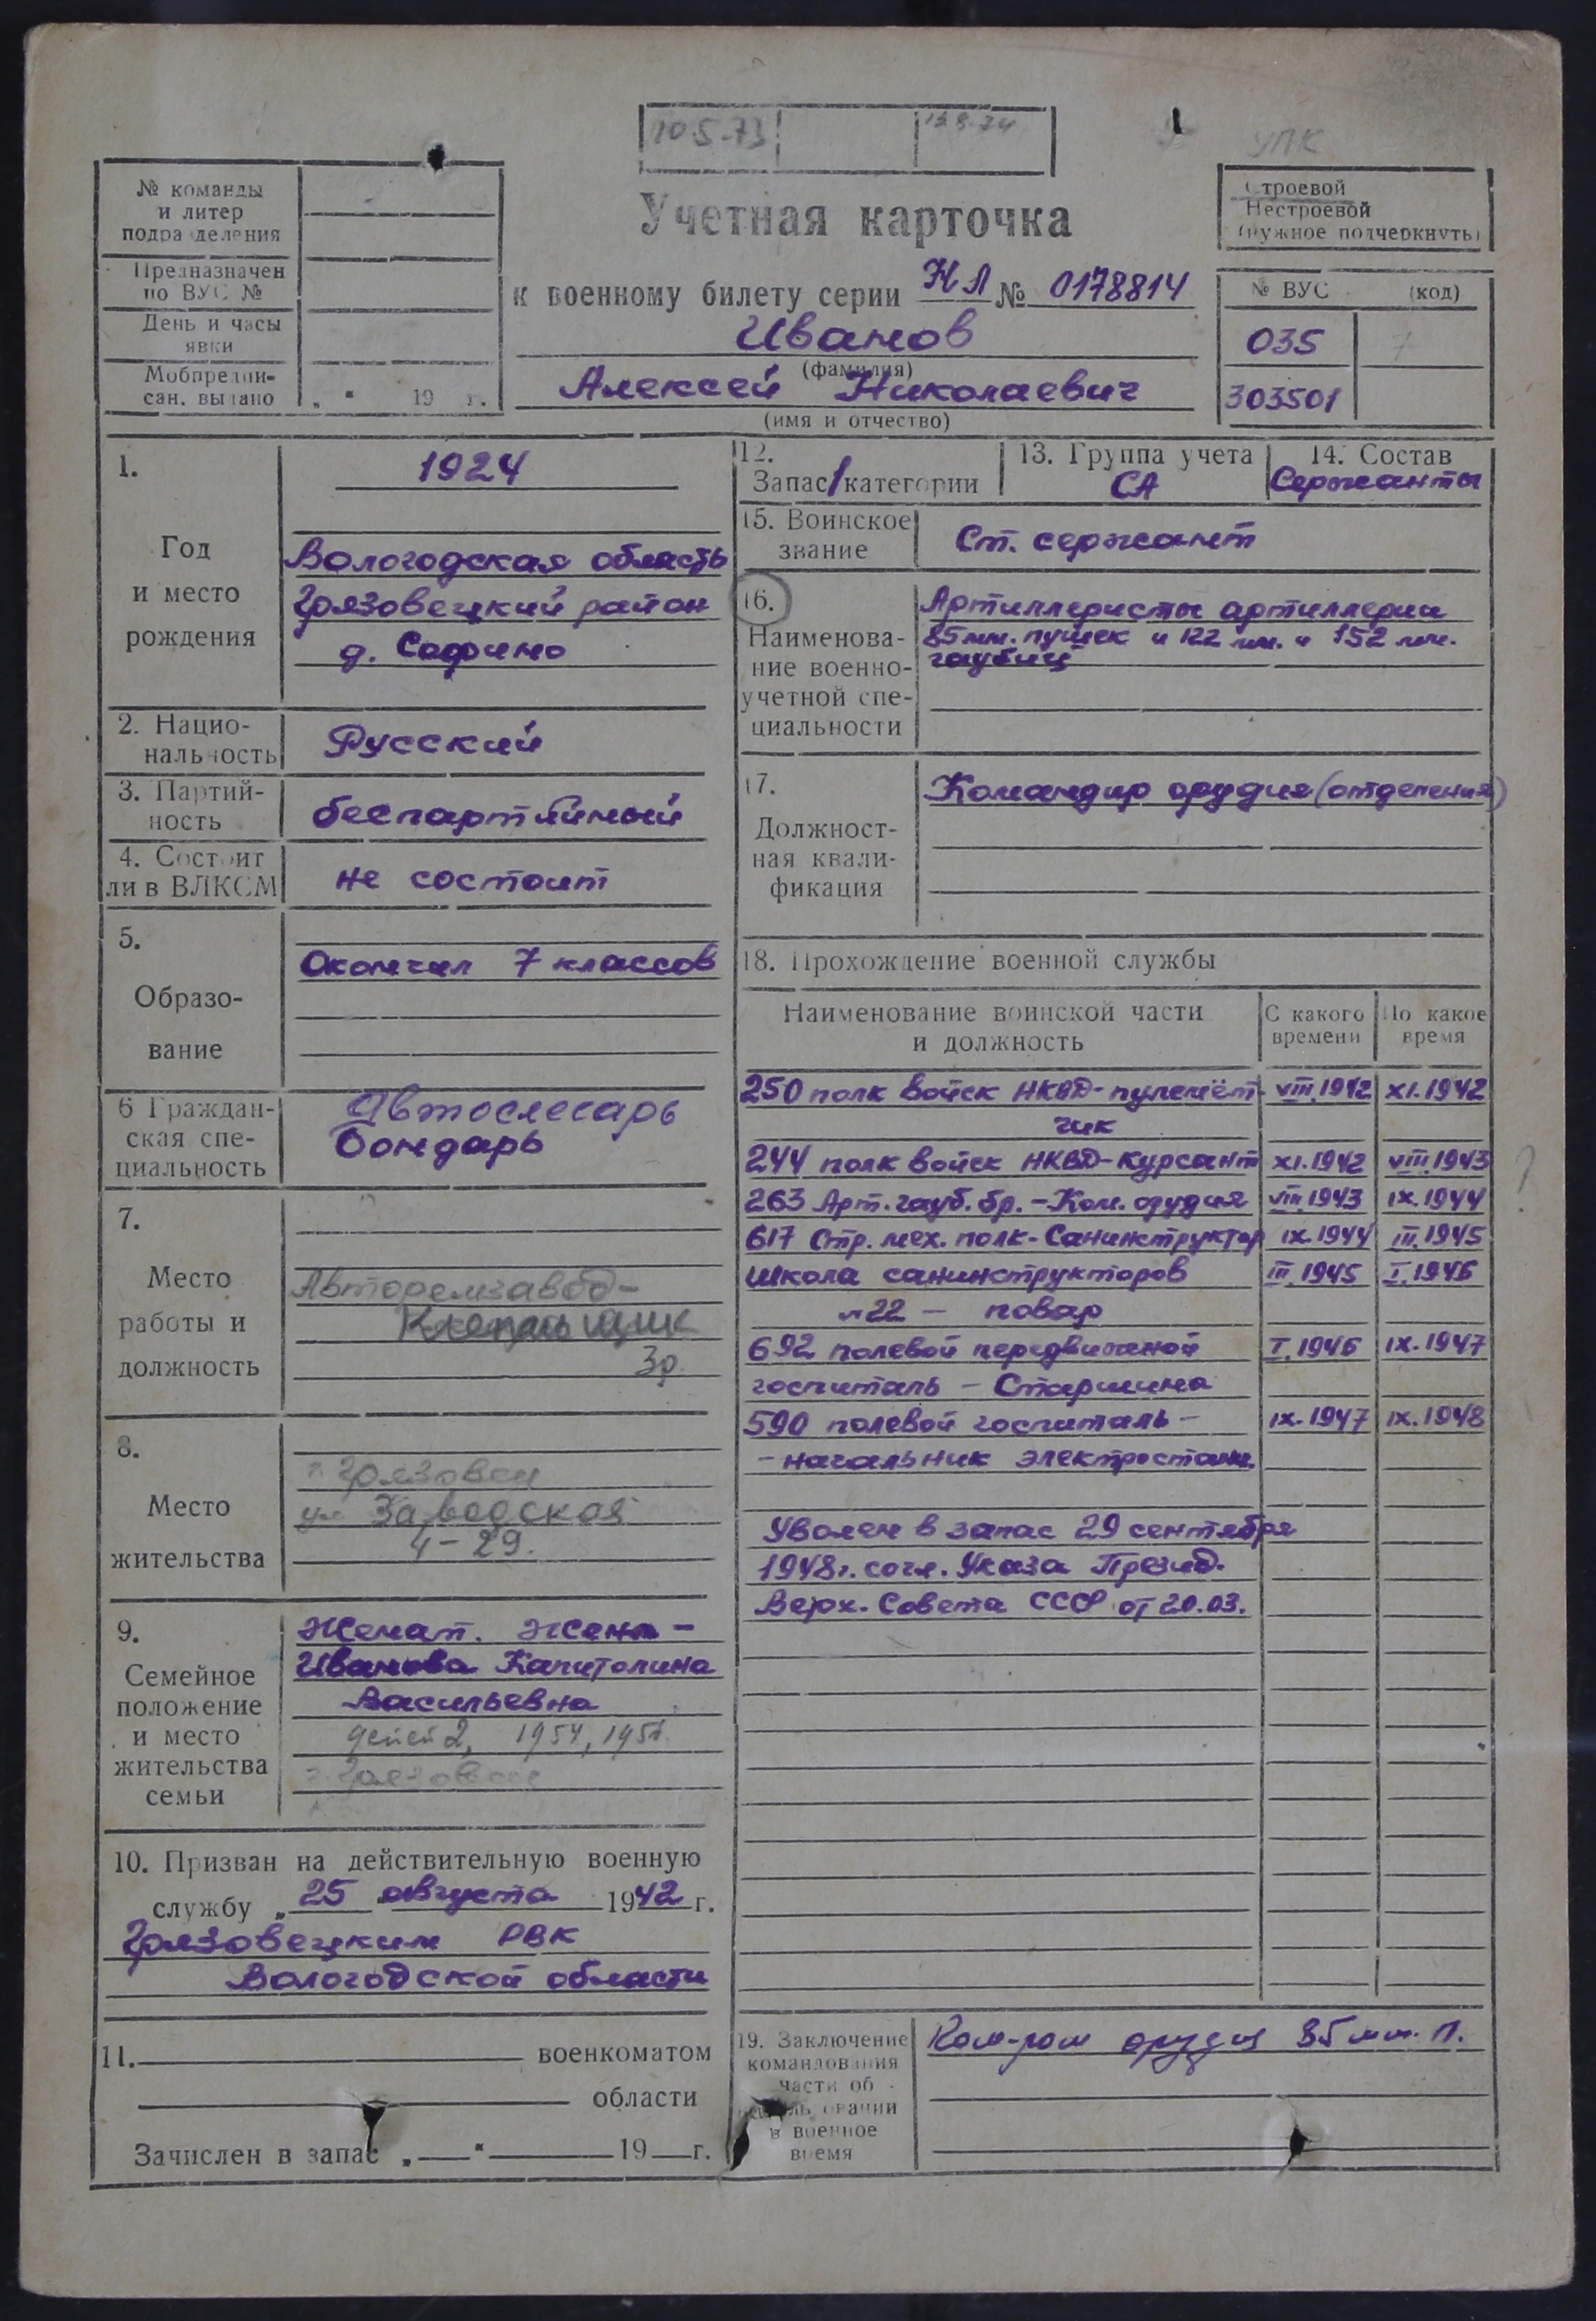 10.5.73 13.8.74
УПК
№ команды
и литер
подразделения
Предназначен
по ВУС №
День и часы
явки
Мобпредпи-
сан. выдано „ “ 19 г.
Учетная карточка
к военному билету серии НЛ № 0178814
Иванов
(фамилия)
Алексей Николаевич
(имя и отчество)
Строевой
Нестроевой
(нужное подчеркнуть)
№ ВУС (код)
035 7
303501
1.
Год
и место
рождения
1924
Вологодская область
Грязовецкий район
д. Софино
2. Нацио-
нальность
Русский
3. Партий-
ность
беспартийный
4. Состоит
ли в ВЛКСМ
не состоит
5.
Образо-
вание
Окончил 7 классов
6 Граждан-
ская спе-
циальность
Автослесарь
Бондарь
7.
Место
работы и
должность
Авторемзавод-
3р.
8.
Место
жительства
г. Грязовец
ул Заводская
4-29.
9.
Семейное
положение
и место
жительства
семьи
Женат. Жена -
Иванова Капитолина
Васильевна
детей 2, 1954,
г. Грязовец
10. Призван на действительную военную
службу „ 25 августа 1942 г.
Грязовецким РВК
Вологодской области
11. военкоматом
области
Зачислен в запас „ “ 19 г.
12.
Запас 1 категории
13. Группа учета
СА
14. Состав
Сержанты
15. Воинское
звание
Ст. сержант
16.
Наименова-
ние военно-
учетной спе-
циальности
Артиллеристы артиллерии
85мм. пушек и 122 мм. и 152 мм.
гаубиц
17.
Должност-
ная квали-
фикация
Командир орудия (отделения)
18. Прохождение военной службы
Наименование воинской части
и должность
С какого
времени
По какое
время
250 полк войск НКВД-пулемёт- VIII.1942 XI.1942
чик
244 полк войск НКВД-курсант XI.1942 VIII.1943 ?
263 Арт. гауб. бр. - Ком. орудия VIII.1943 IX.1944
617 Стр. мех. полк-Санинструктор IX.1944 III.1945
Школа санинструкторов III.1945 I.1946
№22 - повар
692 полевой передвижной I.1946 IX.1947
госпиталь - Старшина
590 полевой госпиталь - IX.1947 IX.1948
- начальник электростанц.
Уволен в запас 29 сентября
1948г. согл. Указа Презид.
Верх. Совета СССР от 20.03.
19. Заключение
командования
части об
в военное
время
Ком-ром орудия 85 мм. п.